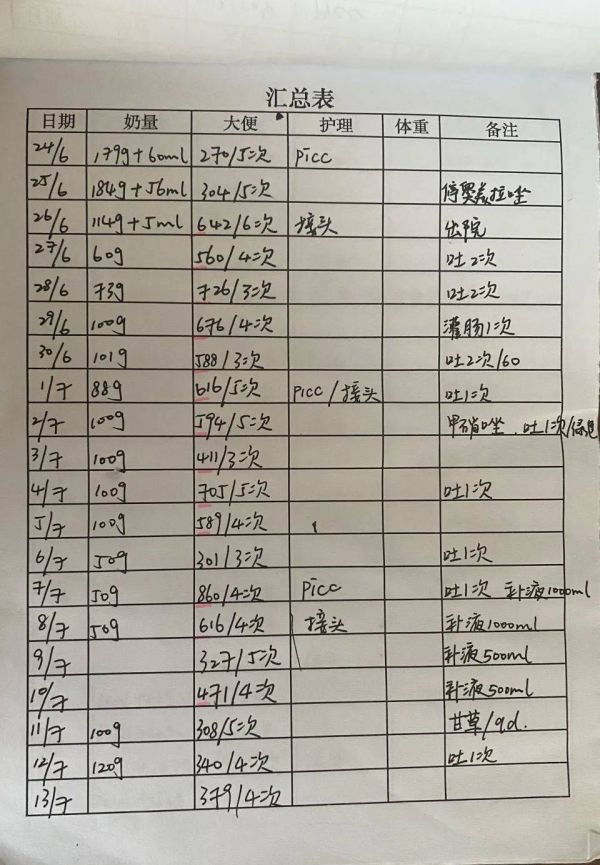 汇总表
日期 奶量 大便 护理 体重 备注
24/6 179g+60ml 270/5次 picc
25/6 184g+56ml 304/5次 停奥美拉唑
26/6 114g+5ml 642/6次 接头 出院
27/6 60g 560/4次 吐2次
28/6 73g 726/3次 吐2次
29/6 100g 676/4次 灌肠1次
30/6 101g 588/3次 吐2次/60
1/7 88g 616/5次 picc/接头 吐1次
2/7 100g 594/5次 甲硝唑、吐1次/绿色
3/7 100g 411/3次
4/7 100g 705/5次 吐1次
5/7 100g 589/4次
6/7 50g 301/3次 吐1次
7/7 50g 860/4次 picc 吐1次 补液1000ml
8/7 50g 616/4次 接头 补液1000ml
9/7 327/5次 补液500ml
10/7 471/4次 补液500ml
11/7 100g 308/5次 甘草/q.d.
12/7 120g 340/4次 吐1次
13/7 379/4次